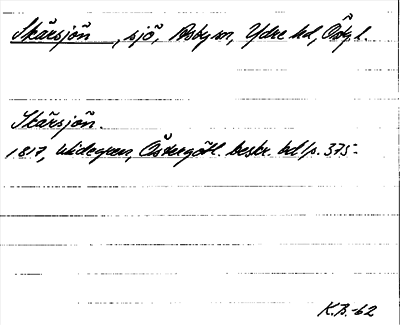 Skärsjön, sjö, Asby sn, Ydre hd, Ög.l.
Skärsjön.
1817, Widegren, Östergötl. beskr. bd 1 p. 375-
K.B.-62